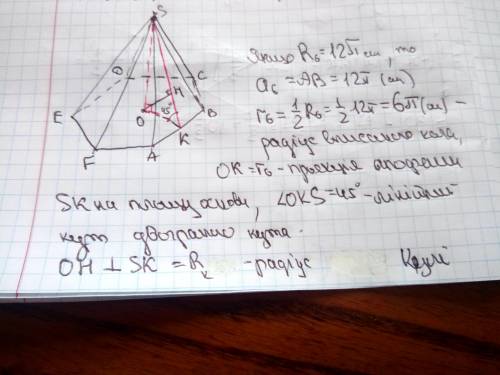 S
якщо R₆=12√π см, то
D C
H
a₆ = AB = 12√π (см)
E O 45° B
r₆ = 1/2 R₆ = 1/2 12√π = 6√π (см) –
F A K
радіус вписаного кола,
OK = r₆ - проекція апофеми
SK на площу основи, ∠OKS = 45° - лінійний
кут двогранного кута.
OH ⊥ SK = Rк - радіус Кулі